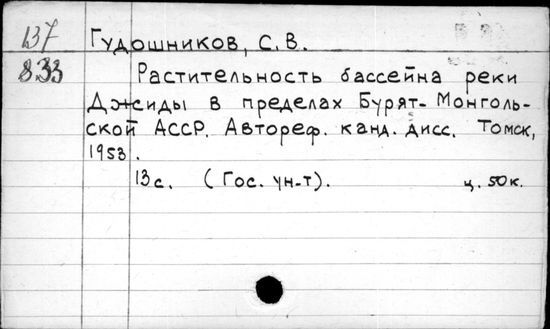 137
833
Гудошников, С. В.
Растительность бассейна реки
Джиды в пределах Бурят-Монголь-
ской АССР. Автореф. канд. дисс. Томск,
1953.
13с. (Гос. ун-т). ц. 50к.